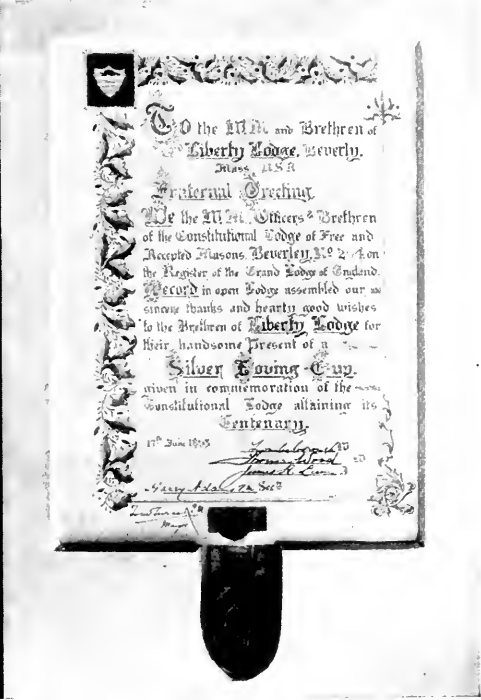 To the W.M. and Brethren of
Liberty Lodge, Beverly.
Mass U.S.A
Fraternal Greeting
We the W.M., Officers & Brethren
of the Constitutional Lodge of Free and
Accepted Masons, Beverley, No on
the Register of the Grand Lodge of England.
Record in open Lodge assembled our
sincere thanks and hearty good wishes
to the Brethren of Liberty Lodge for
their handsome Present of a
Silver Loving-Cup.
given in commemoration of the
Constitutional Lodge attaining its
Centenary.
17th June
Wood
James R
Harry Sec